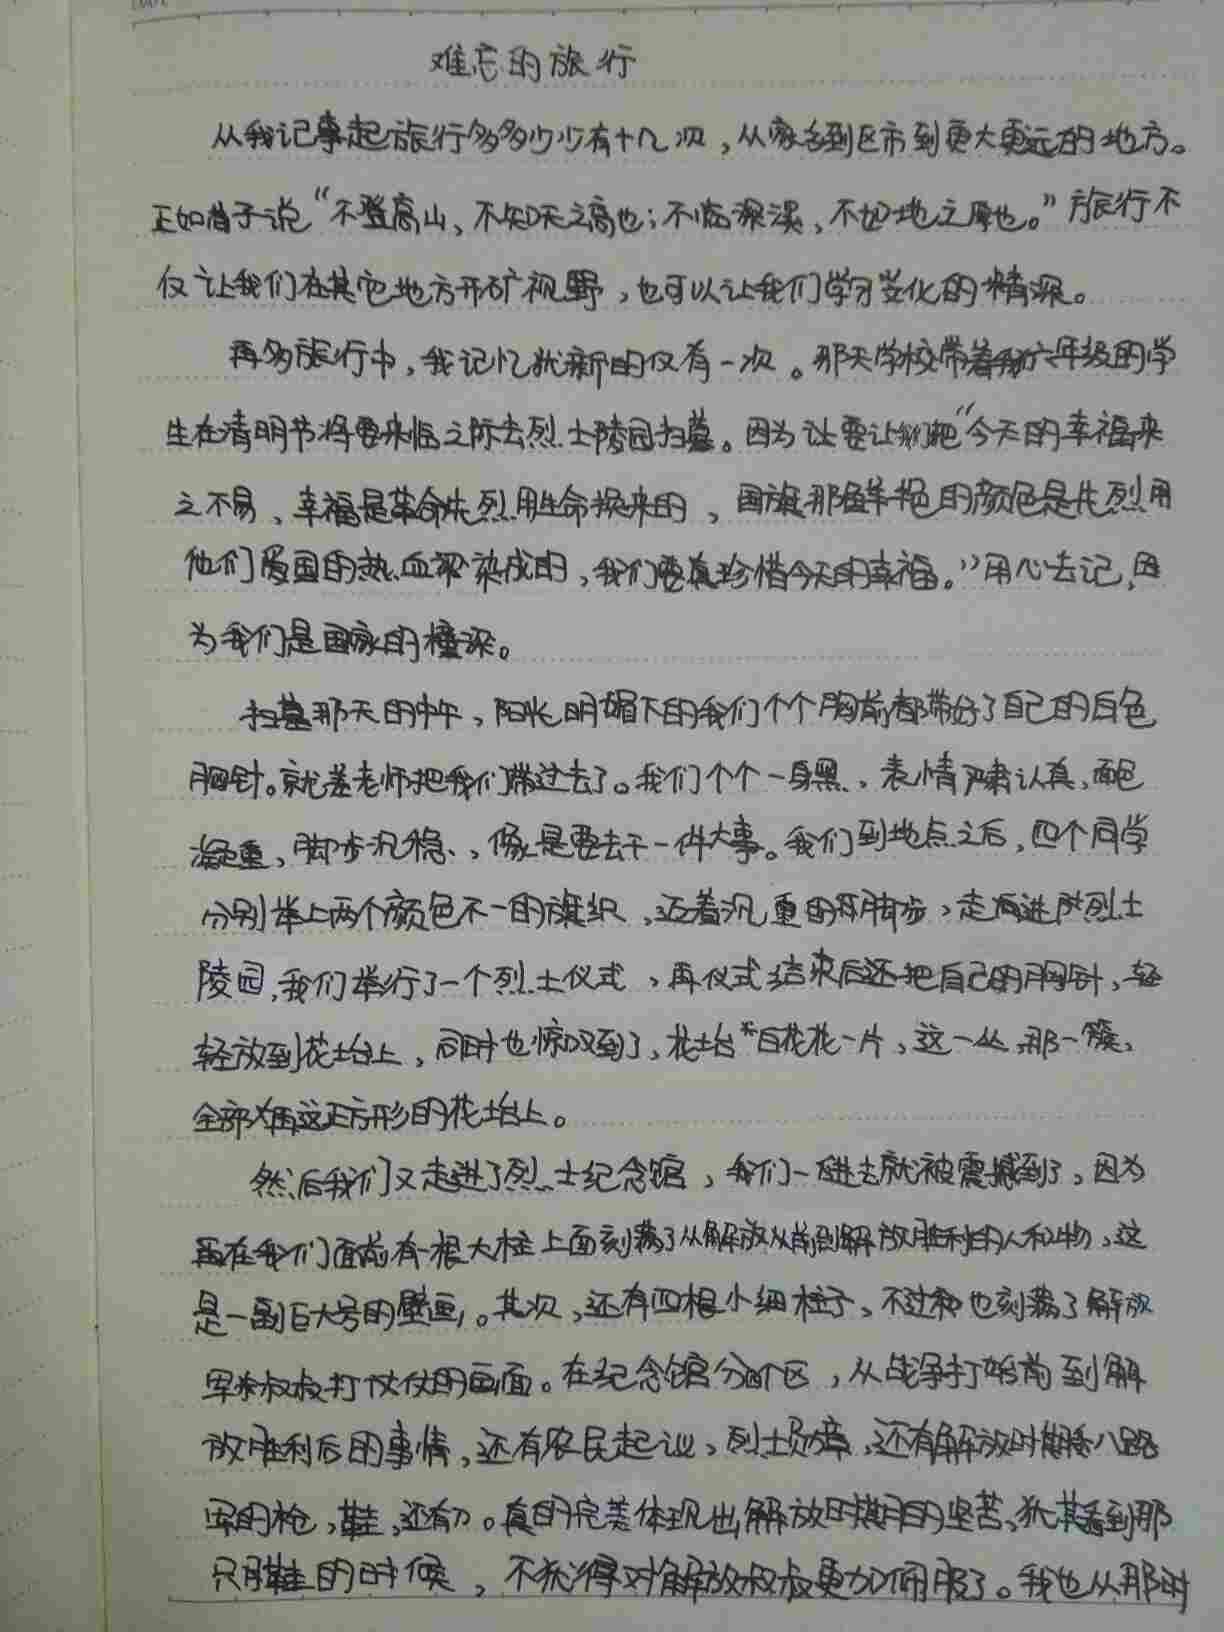 难忘的旅行
从我记事起旅行多多少少有十几次，从家乡到区市到更大更远的地方。
正如荀子说“不登高山、不知天之高也；不临深溪，不知地之厚也。”旅行不
仅让我们在其它地方开矿视野，也可以让我们学习文化的精深。
再多旅行中，我记忆犹新的仅有一次。那天学校带着我们六年级的学
生在清明节将要来临之际去烈士陵园扫墓。因为让要让我们把“今天的幸福来
之不易、幸福是革命先烈用生命换来的，国旗那鲜艳的颜色是先烈用
他们爱国的热血染成的，我们要真珍惜今天的幸福。”用心去记，因
为我们是国家的橦梁。
扫墓那天的中午，阳光明媚下的我们个个胸前都带好了自己的白色
胸针。就差老师把我们带过去了。我们个个一身黑、表情严肃认真，面色
凝重，脚步沉稳、，像是要去干一件大事。我们到地点之后，四个同学
分别举上两个颜色不一的旗织，迈着沉重的脚步，走进烈士
陵园，我们举行了一个烈士仪式，再仪式结束后还把自己的胸针，轻
轻放到花坮上，同时也惊叹到了，花坮白花花一片，这一丛，那一簇，
全部在这正方形的花坮上。
然后我们又走进了烈士纪念馆，我们一进去就被震撼到了，因为
在我们面前有一根大柱上面刻满了从解放从前到解放胜利的人和物，这
是一副巨大号的壁画。其次，还有四根小细柱子，不过也刻满了解放
军叔叔打仗的画面。在纪念馆分个区，从战争打始前到解
放胜利后的事情，还有农民起议，烈士勋章，还有解放时期八路
军的枪，鞋，还有刀。真的完美体现出解放时期的坚苦，犹其看到那
只鞋的时候，不犹得对解放叔叔更加佣服了。我也从那时